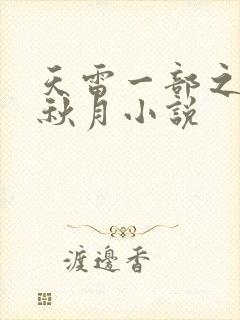 天雷一部之
秋月小説
渡邊香